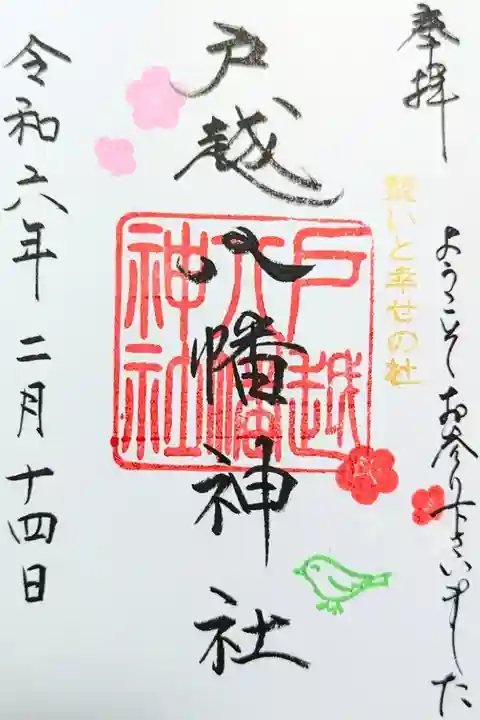 奉拝
ようこそお参り下さいました
誓いと幸せの社
戸越八幡神社
戸越
八幡
神社
令和六年二月十四日